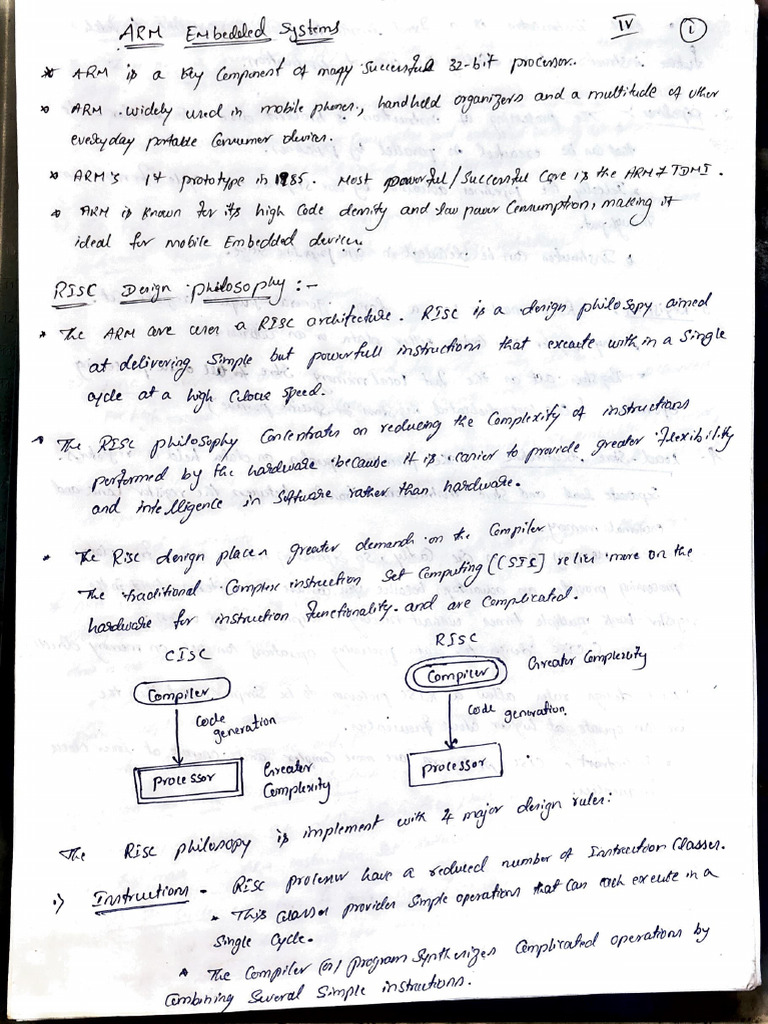 ARM Embedded Systems IV 1
* ARM is a key component of many successful 32-bit processor.
* ARM widely used in mobile phones, handheld organizers and a multitude of other
everyday portable consumer devices.
* ARM's 1st prototype in 1985. Most powerful/successful Core is the ARM7TDMI.
* ARM is known for its high code density and low power consumption, making it
ideal for mobile Embedded devices.
RISC Design philosophy :-
* The ARM core uses a RISC architecture. RISC is a design philosopy aimed
at delivering simple but powerfull instructions that execute with in a single
cycle at a high clock speed.
* The RISC philosophy concentrates on reducing the complexity of instructions
performed by the hardware because it is easier to provide greater flexibility
and intelligence in software rather than hardware.
* The RISC design places greater demands on the compiler
The traditional complex instruction set computing [CISC] relies more on the
hardware for instruction functionality. and are complicated.
CISC RISC
Compiler Compiler Greater Complexity
Code generation code generation.
processor Greater Complexity processor
The RISC philosopy is implement with 4 major design rules:
1) Instructions - RISC processor have a reduced number of Instruction classes.
* This classes provides simple operations that can each execute in a
single cycle.
* The compiler (or) program synthesizes complicated operations by
combining several simple instructions.